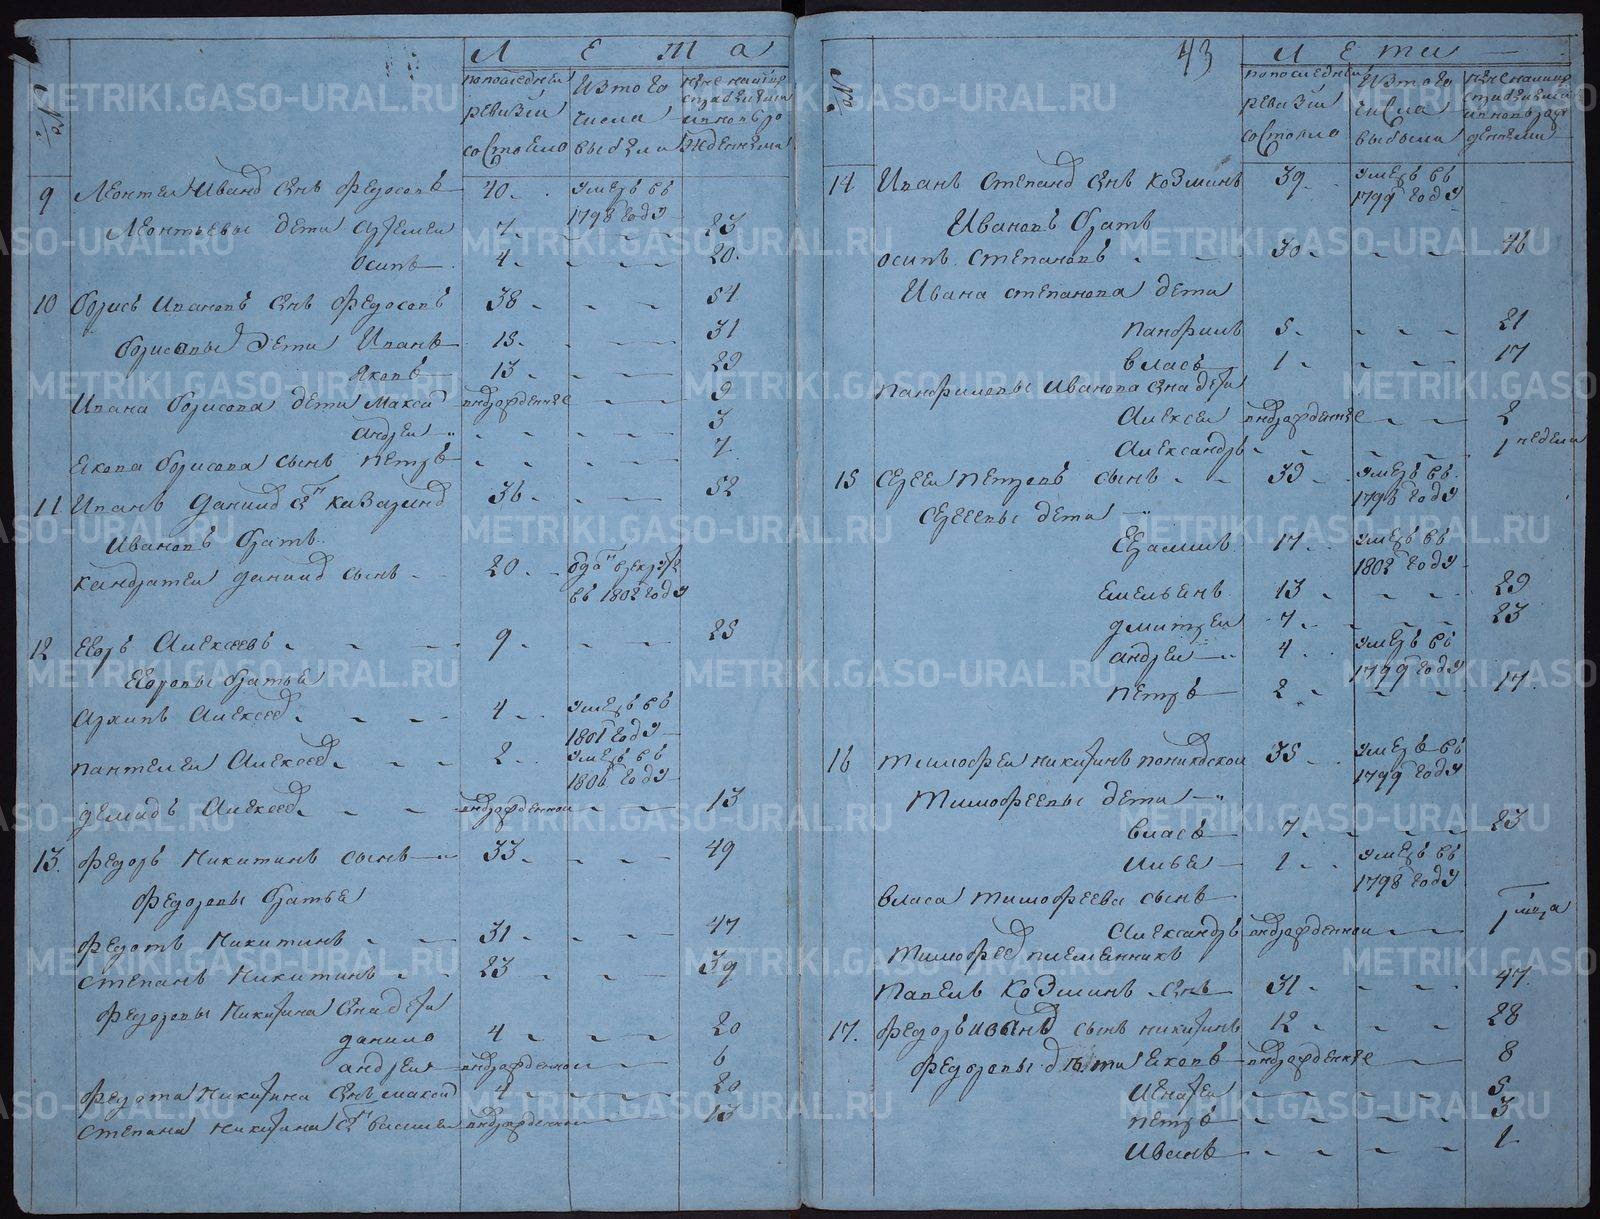 Л Е Т А
№
по последней ревизии состояло
из того числа выбыло
ныне налицо
9 Леонтей Иванов сынъ Федосовъ 40 умеръ въ 1798 году
Леонтьевы дети Артемей 7 23
Осипъ 4 20
10 Борисъ Ивановъ сынъ Федосовъ 38 54
Борисовы дети Иванъ 15 31
Яковъ 13 29
Ивана Борисова дети Максим вновьрожденные 9
Андрей 3
Екова Борисова сынъ Петръ 7
11 Иванъ Данилов сын 36 52
Ивановъ братъ
Кандратей Данилов сынъ 20 въ 1802 году
12 Егоръ Алексеевъ 9 25
Егоровы братья
Архипъ Алексеев 4 умеръ въ 1801 году
Пантелей Алексеев 2 умеръ въ 1806 году
Демидъ Алексеев вновьрожденной 13
13 Федоръ Никитинъ сынъ 33 49
Федоровы братья
Федотъ Никитинъ 31 47
Степанъ Никитинъ 23 39
Федоровы Никитина сына дети
Данило 4 20
Андрей вновьрожденной 6
Федота Никитина сынъ 4 20
Степана Никитина сын Василей вновьрожденной 13
43
Л Е Т А
№
по последней ревизии состояло
из того числа выбыло
ныне налицо
14 Иванъ Степанов сынъ Козминъ 39 умеръ въ 1799 году
Ивановъ братъ
Осипъ Степановъ 30 46
Ивана Степанова дети
Панфилъ 5 21
Власъ 1 17
Панфиловы Иванова сына дети
Алексей вновьрожденные 2
Александръ 1 недели
15 Сергей Петровъ сынъ 39 умеръ въ 1798 году
Сергеевы дети
Герасимъ 17 умеръ въ 1802 году
Емельянъ 13 29
Дмитрей 7 23
Андрей 4 умеръ въ 1799 году
Петръ 2 17
16 Тимофей Никитинъ 35 умеръ въ 1799 году
Тимофеевы дети
Власъ 7 23
Илья 1 умеръ въ 1798 году
Власа Тимофеева сынъ
Александръ вновьрожденной 1
Тимофеев племенникъ
Павелъ Козминъ сынъ 31 47
17 Федоръ Иванов сынъ Никитинъ 12 28
Федоровы дети Ековъ вновьрожденные 8
Игнатей 5
Петръ 3
Иванъ 1
METRIKI.GASO-URAL.RU